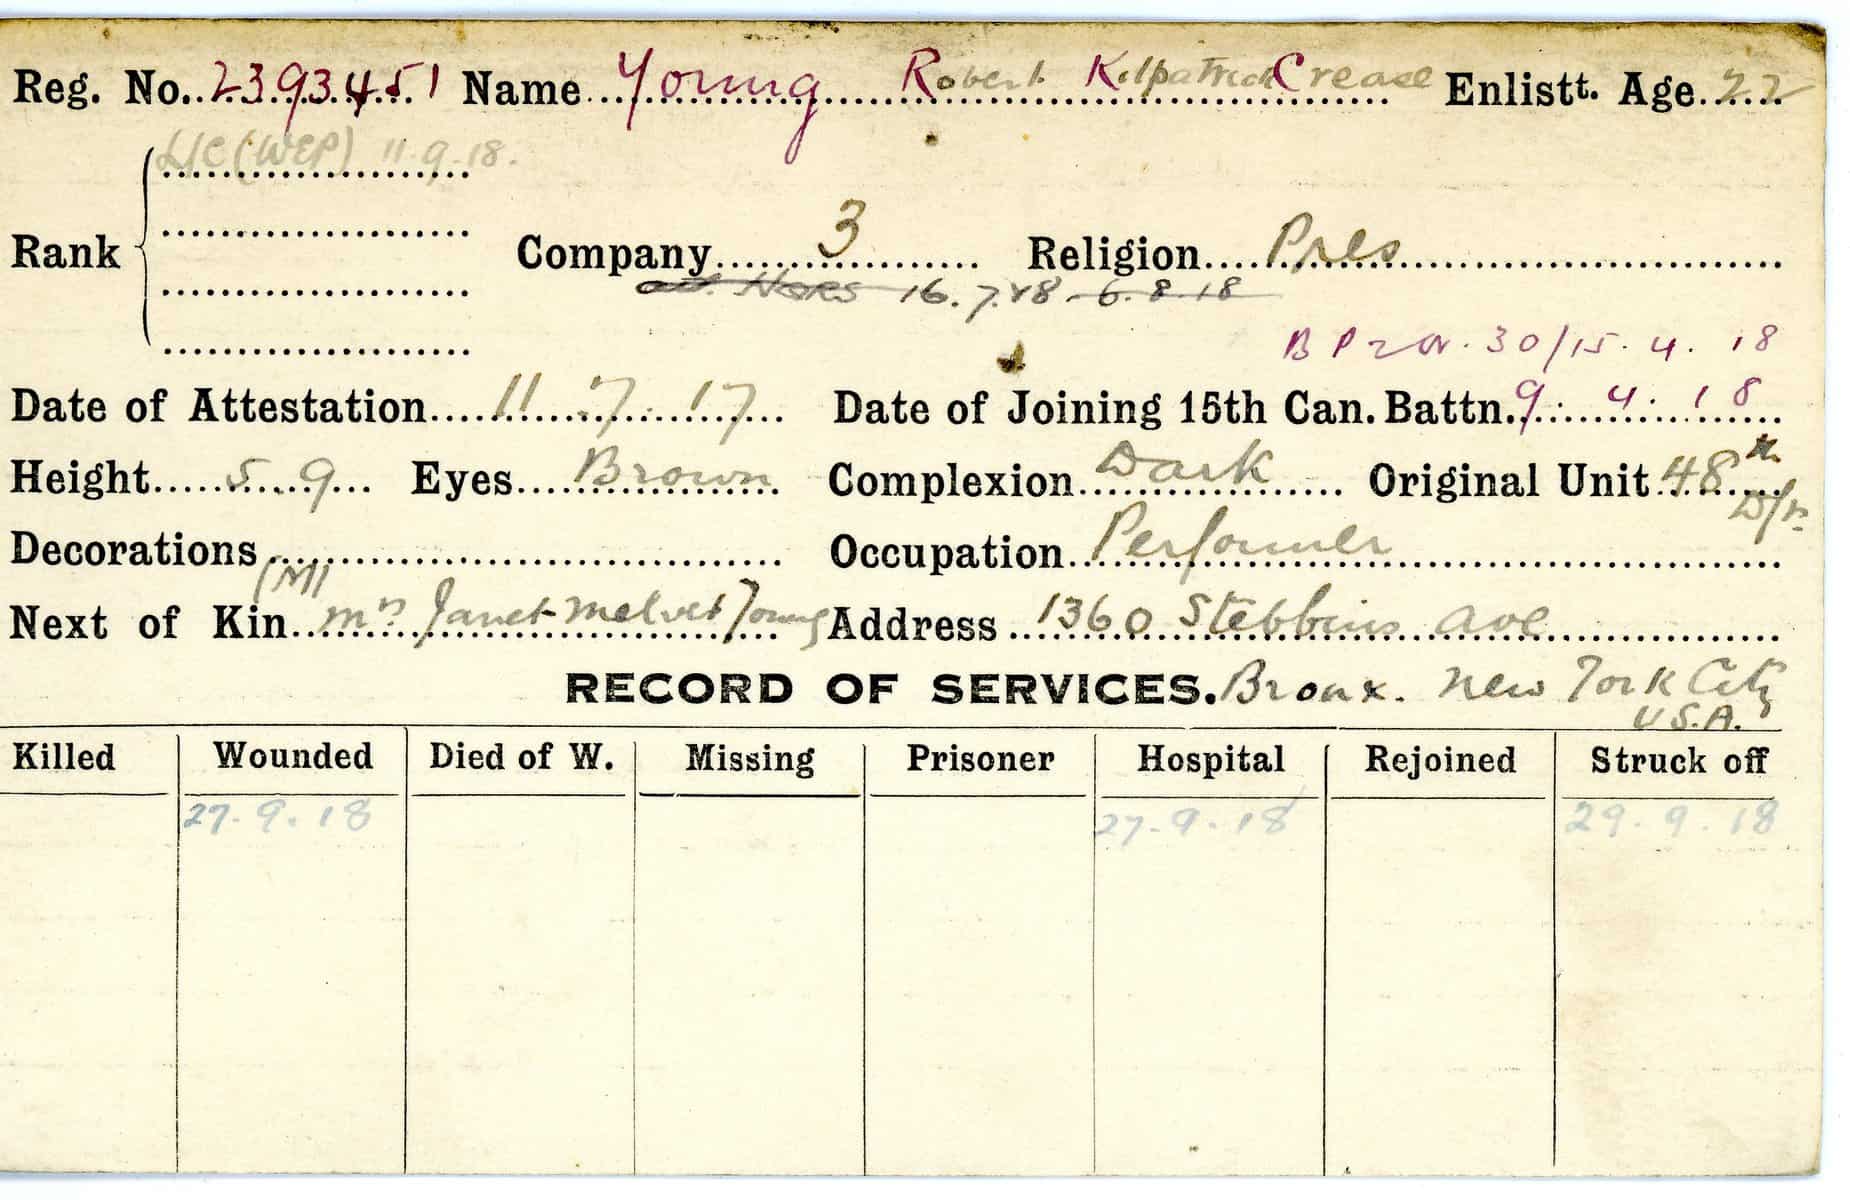 Reg. No. 2393451 Name Young Robert Kilpatrick Crease Enlistt. Age 22
L/C (WEP) 11.9.18.
Rank Company 3 Religion Pres
16.7.18 - 6.8.18
30/15.4.18
Date of Attestation 11.7.17 Date of Joining 15th Can. Battn. 9.4.18
Height 5.9 Eyes Brown Complexion Dark Original Unit 48th
Decorations Occupation Performer
(M)
Next of Kin Mrs Janet Young Address 1360 Stebbins Ave
RECORD OF SERVICES. Bronx. New York City
U.S.A.
Killed Wounded Died of W. Missing Prisoner Hospital Rejoined Struck off
27.9.18 27.9.18 29.9.18